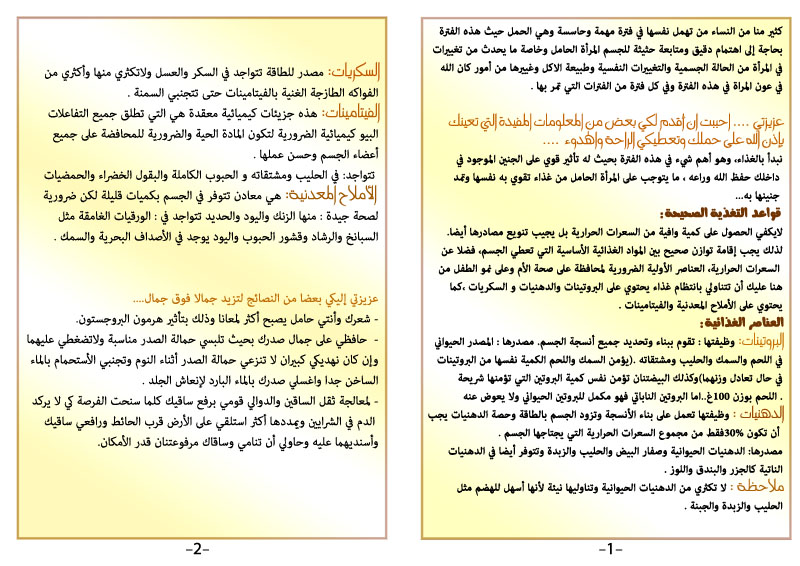 كثير منا من النساء من تهمل نفسها في فترة مهمة وحاسسة وهي الحمل حيث هذه الفترة
بحاجة إلى اهتمام دقيق ومتابعة حثيثة للجسم المرأة الحامل وخاصة ما يحدث من تغييرات
في المرأة من الحالة الجسمية والتغييرات النفسية وطبيعة الاكل وغيرها من أمور كان الله
في عون المراة في هذه الفترة وفي كل فترة من الفترات التي تمر بها .
عزيزتي .... احببت ان اقدم لكي بعض من المعلومات المفيدة التي تعينك
بإذن الله على حملك وتعطيكي الراحة والهدوء ....
نبدأ بالغذاء، وهو أهم شيء في هذه الفترة بحيث له تأثير قوي على الجنين الموجود في
داخلك حفظ الله وراعه ، ما يتوجب على المرأة الحامل من غذاء تقوي به نفسها وتمد
جنينها به...
قواعد التغذية الصحيحة:
لايكفي الحصول على كمية وافية من السعرات الحرارية بل يجيب تنويع مصادرها أيضا.
لذلك يجب إقامة توازن صحيح بين المواد الغذائية الأساسية التي تعطي الجسم، فضلا عن
السعرات الحرارية، العناصر الأولية الضرورية لمحافظة على صحة الأم وعلى نمو الطفل من
هنا عليك أن تتناولي بانتظام غذاء يحتوي على البروتينات والدهنيات و السكريات ،كما
يحتوي على الأملاح المعدنية والفيتامينات .
العناصر الغذائية:
البروتينات: وظيفتها : تقوم ببناء وتحديد جميع أنسجة الجسم. مصدرها : المصدر الحيواني
في اللحم والسمك والحليب ومشتقاته .(يؤمن السمك واللحم الكمية نفسها من البروتينات
في حال تعادل وزنهما)وكذلك البيضتنان تؤمن نفس كمية البروتين التي تؤمنها شريحة
. اللحم بوزن 100غ..اما البروتين النباتي فهو مكمل للبروتين الحيواني ولا يعوض عنه
الدهنيات : وظيفتها تعمل على بناء الأنسجة وتزود الجسم بالطاقة وحصة الدهنيات يجب
أن تكون 30%فقط من مجموع السعرات الحرارية التي يجتاجها الجسم .
مصدرها: الدهنيات الحيوانية وصفار البيض والحليب والزبدة وتتوفر أيضا في الدهنيات
الناتية كالجزر والبندق واللوز .
ملاحظة : لا تكثري من الدهنيات الحيوانية وتناوليها نيئة لأنها أسهل للهضم مثل
الحليب والزبدة والجبنة .
-1-
السكريات: مصدر للطاقة تتواجد في السكر والعسل ولاتكثري منها وأكثري من
الفواكه الطازجة الغنية بالفيتامينات حتى تتجنبي السمنة .
الفيتامينات: هذه جزيئات كيميائية معقدة هي التي تطلق جميع التفاعلات
البيو كيميائية الضرورية لتكون المادة الحية والضرورية للمحافضة على جميع
أعضاء الجسم وحسن عملها .
تتواجد: في الحليب ومشتقاته و الحبوب الكاملة والبقول الخضراء والحمضيات
الأملاح المعدنية: هي معادن تتوفر في الجسم بكميات قليلة لكن ضرورية
لصحة جيدة : منها الزنك واليود والحديد تتواجد في : الورقيات الغامقة مثل
السبانخ والرشاد وقشور الحبوب واليود يوجد في الأصداف البحرية والسمك .
عزيزتي إليكي بعضا من النصائج لتزيد جمالا فوق جمال....
- شعرك وأنتي حامل يصبح أكثر لمعانا وذلك بتأثير هرمون البروجستون.
- حافظي على جمال صدرك بحيث تلبسي حمالة الصدر مناسبة ولاتضغطي عليهما
وإن كان نهديكي كبيران لا تنزعي حمالة الصدر أثناء النوم وتجنبي الأستحمام بالماء
الساخن جدا واغسلي صدرك بالماء البارد لإنعاش الجلد .
- لمعالجة ثقل الساقين والدوالي قومي برفع ساقيك كلما سنحت الفرصة كي لا يركد
الدم في الشرايين ويمددها أكثر استلقي على الأرض قرب الحائط ورافعي ساقيك
وأسنديهما عليه وحاولي أن تنامي وساقاك مرفوعتنان قدر الأمكان.
-2-